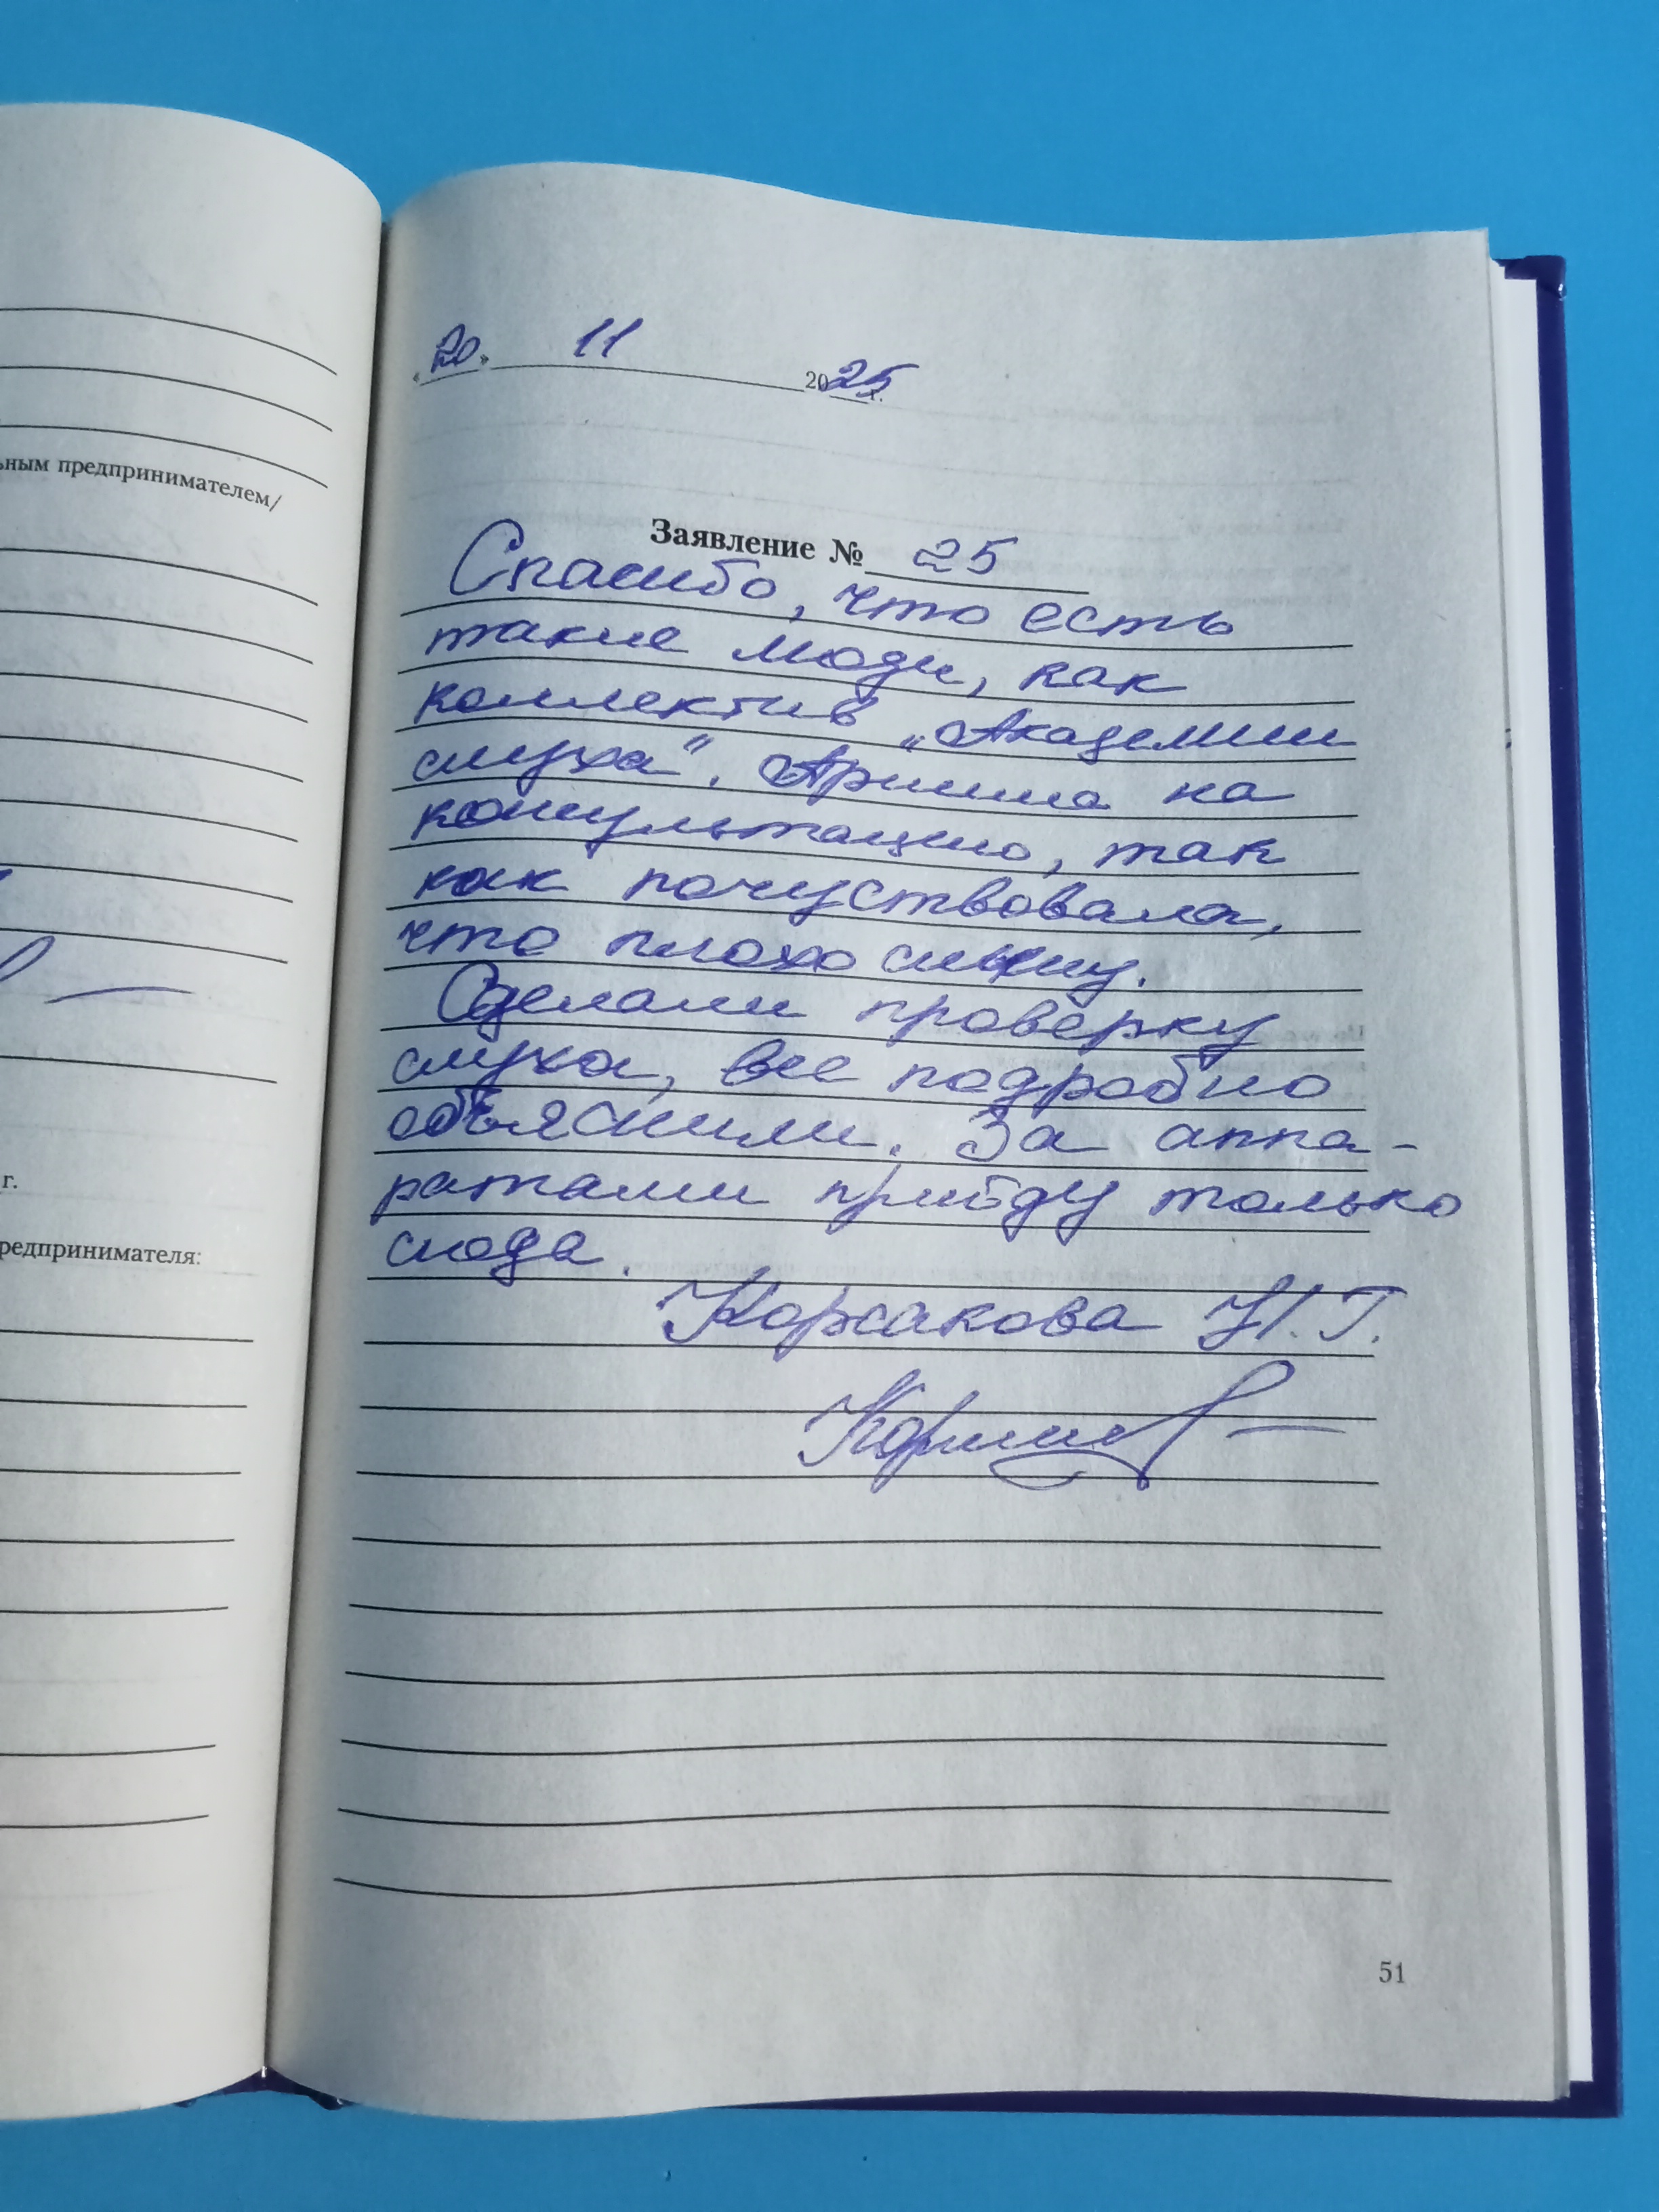 ьным предпринимателем/
г.
редпринимателя:
«20» 11 2025 г.
Заявление № 25
Спасибо, что есть
такие люди, как
коллектив „Академии
слуха". Пришла на
консультацию, так
как почуствовала,
что плохо слышу.
Сделали проверку
слуха, все подробно
объяснили. За аппа-
ратами прийду только
сюда.
Корсакова Н.Г.
51